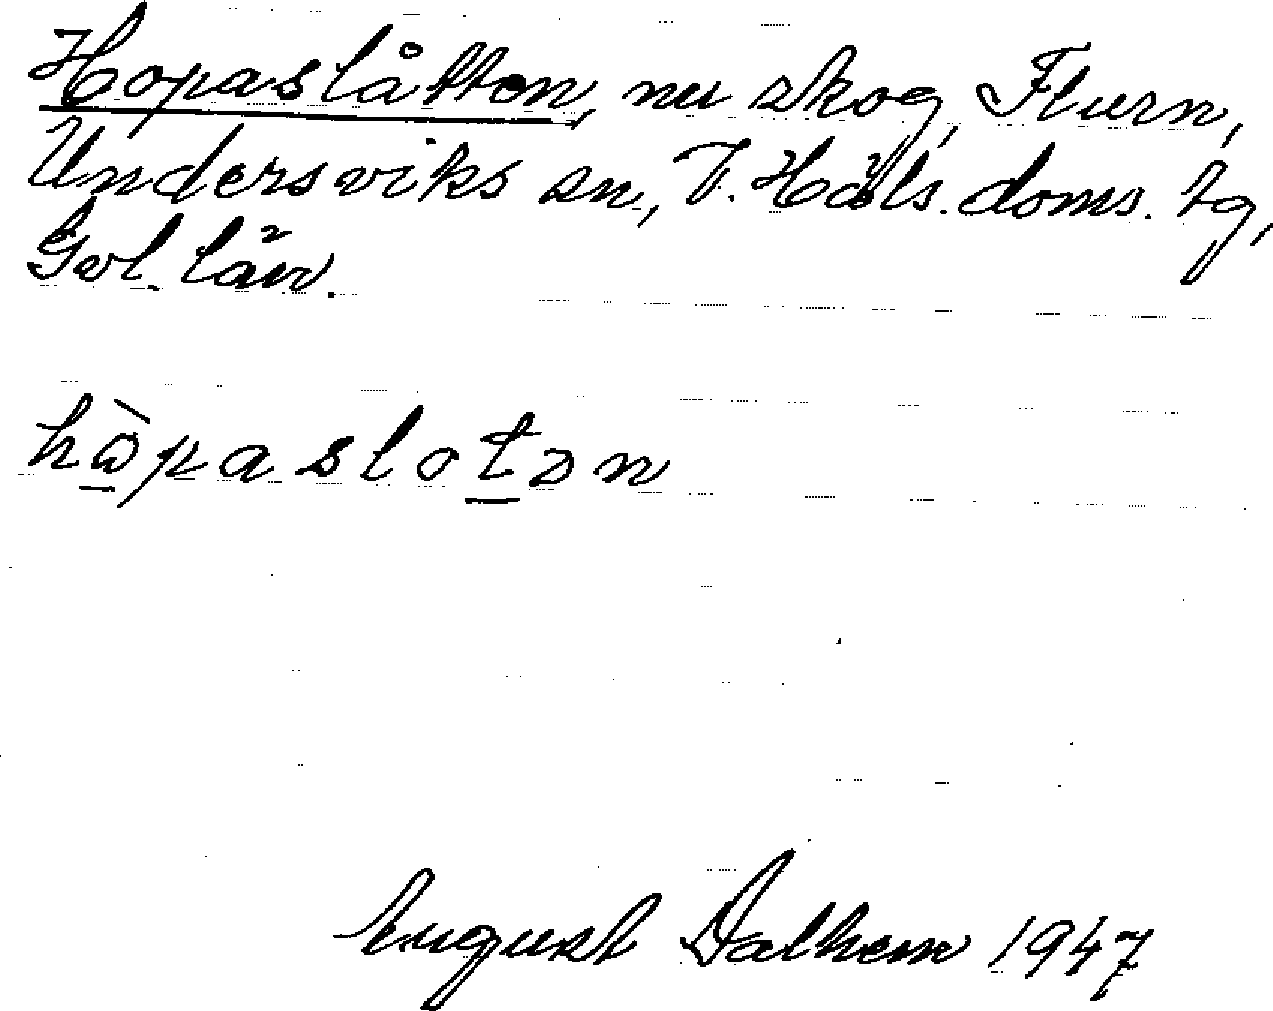 Hopaslåtten, nu skog, Flurn,
Undersviks sn, V. Häls. doms. tg,
Gvl. län.
hò̱paslot̲ən
August Dalhem 1947